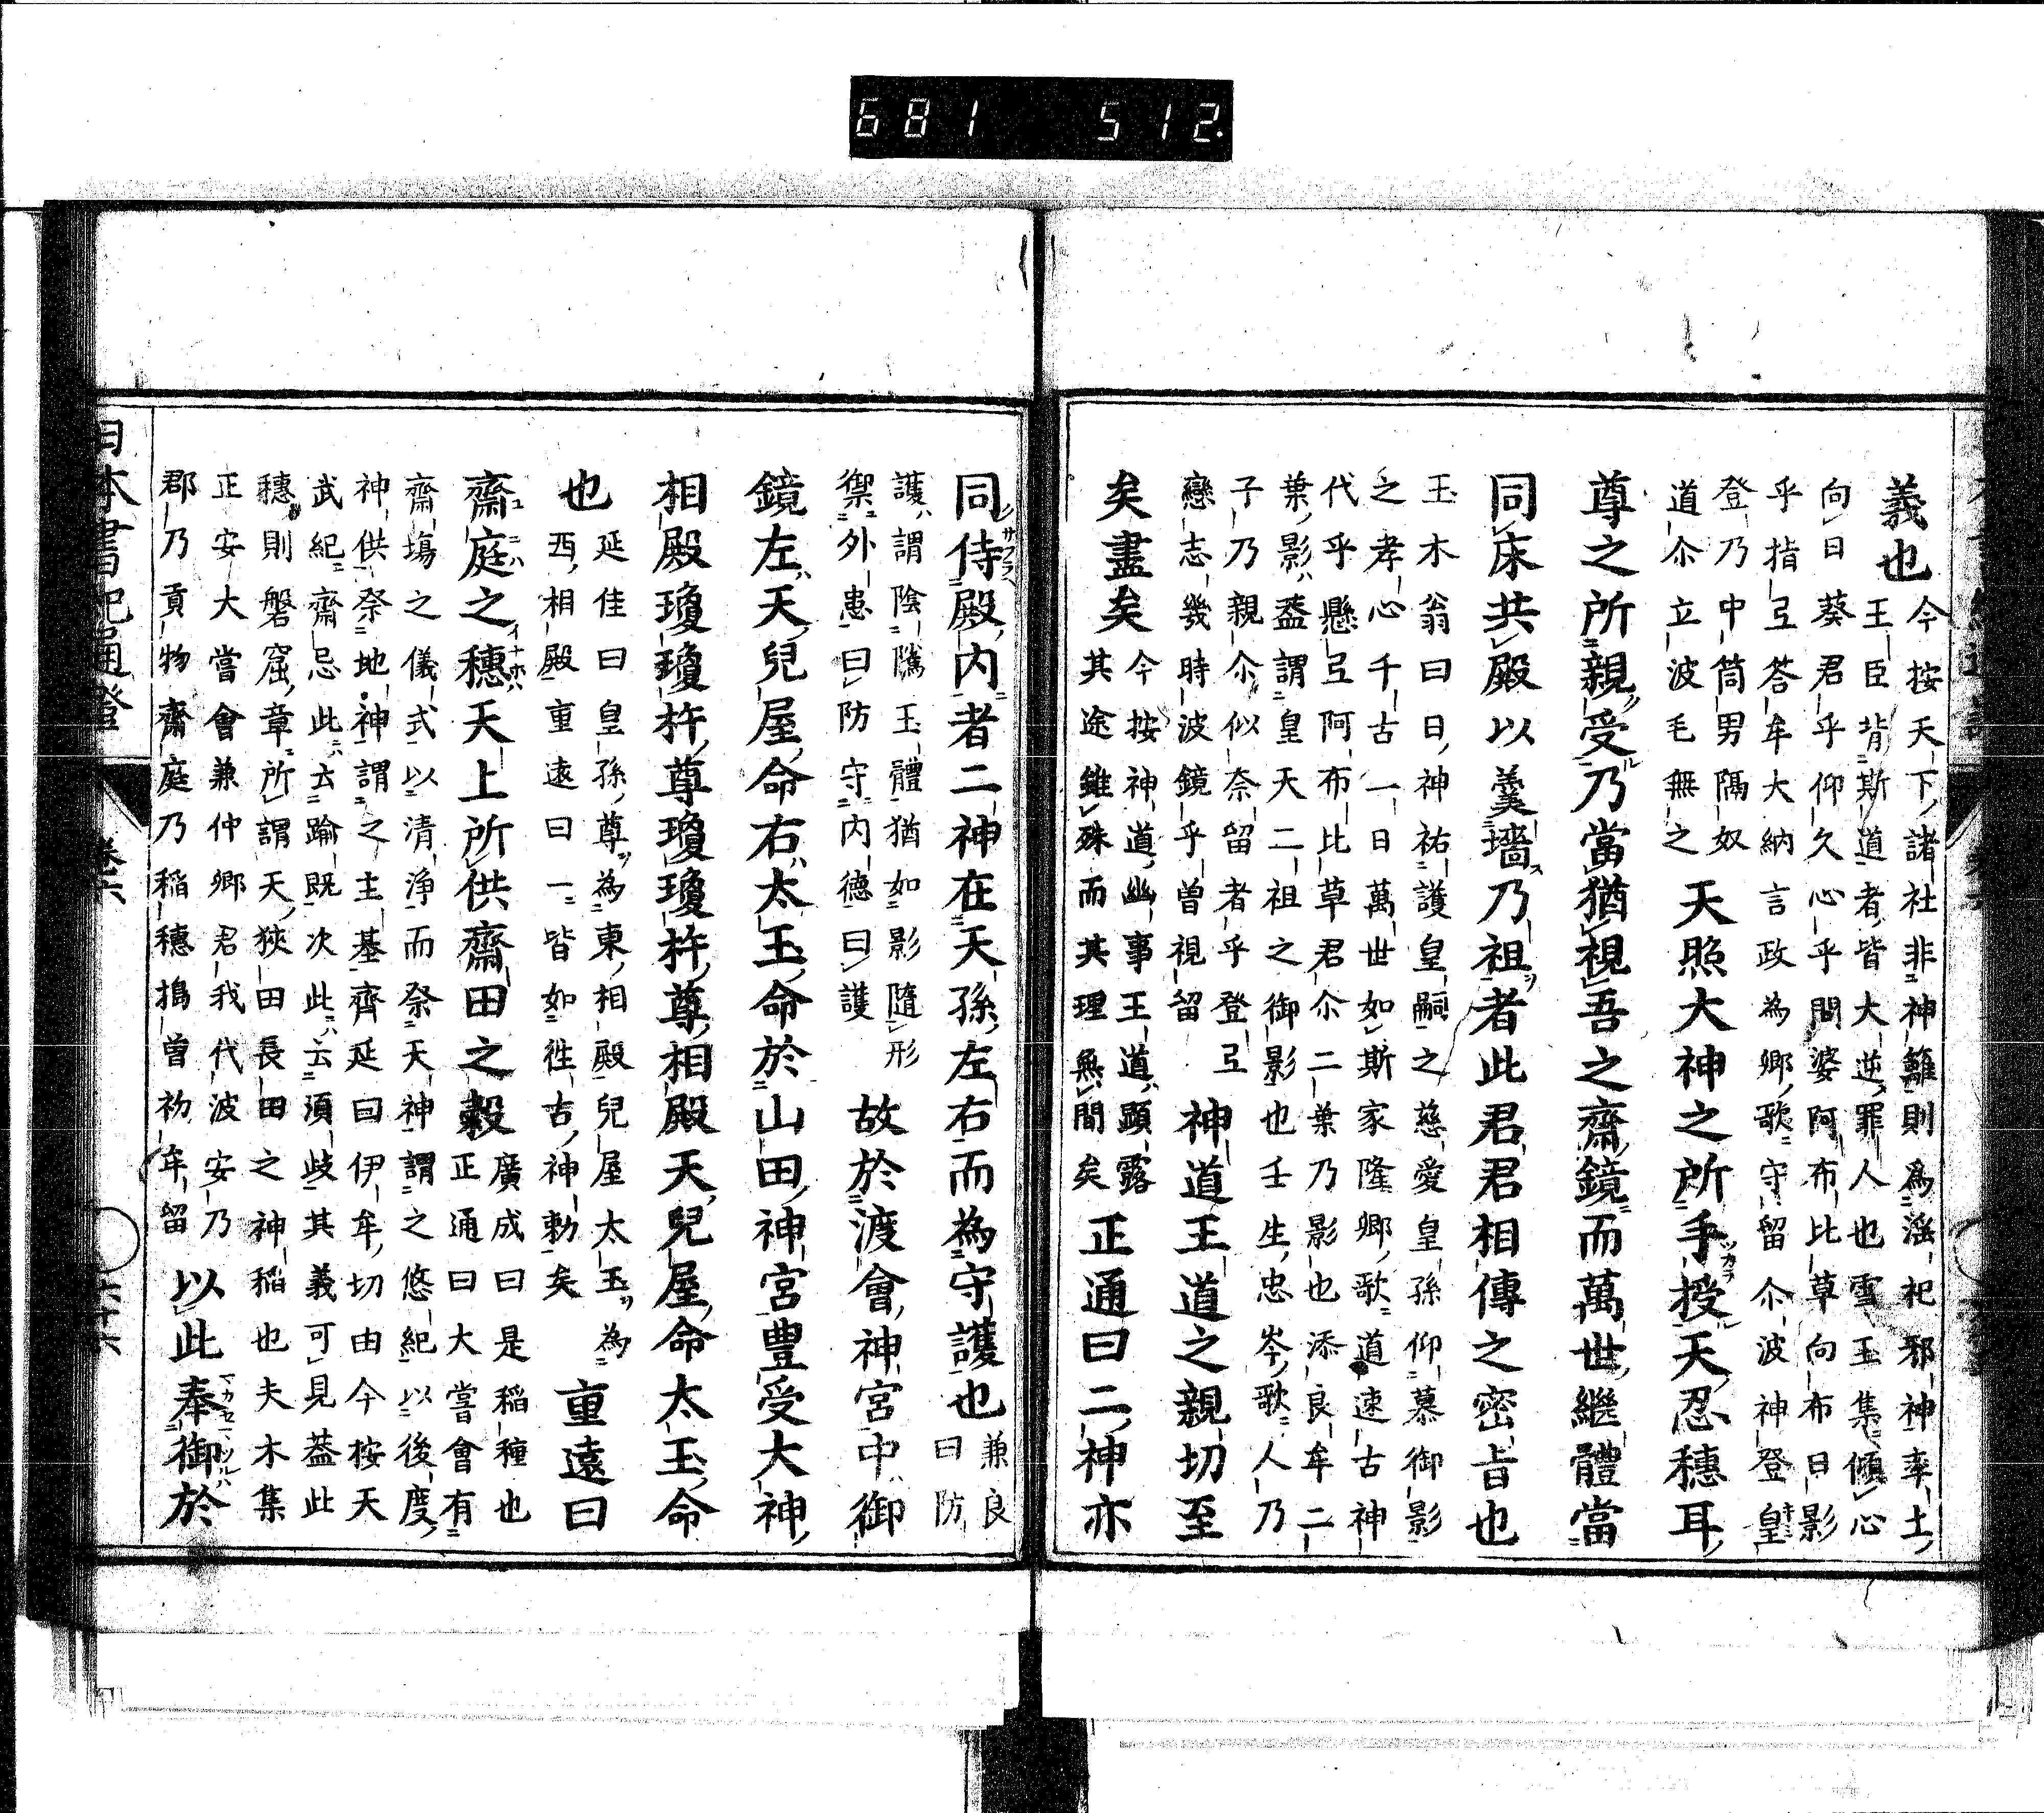 681 512.
義也
今按天下諸社非神籬則為淫祀邪神率土
王臣背斯道者皆大逆罪人也雪玉集傾心
向日葵君乎仰久心乎問婆阿布比草向布日影
乎指弖答牟大納言政為卿歌守留尒波神登皇
登乃中筒男隅奴
道尒立波毛無之
天照大神之所手授天忍穗耳
尊之所親受乃當猶視吾之齋鏡而萬世繼體當
同床共殿以羹墻乃祖者此君君相傳之密旨也
玉木翁曰日神祐護皇嗣之慈愛皇孫仰慕御影
之孝心千古一日萬世如斯家隆卿歌道速古神
代乎懸弖阿布比草君尒二葉乃影也添良牟二
葉影蓋謂皇天二祖之御影也壬生忠岑歌人乃
子乃親尒似奈留者乎登弖
戀志幾時波鏡乎曽視留
神道王道之親切至
矣盡矣
今按神道幽事王道顕露
其途雖殊而其理無間矣
正通曰二神亦
同侍殿内者二神在天孫左右而為守護也
兼良
曰防
護謂陰隲玉體猶如影隨形
禦外患曰防守内德曰護
故於渡會神宮中御
鏡左天兒屋命右太玉命於山田神宮豊受大神
相殿瓊瓊杵尊瓊瓊杵尊相殿天兒屋命太玉命
也
延佳曰皇孫尊為東相殿兒屋太玉為
西相殿重遠曰一皆如徃古神勅矣
重遠曰
齋庭之穗天上所供齋田之穀
廣成曰是稲種也
正通曰大嘗會有
齋場之儀式以清浄而祭天神謂之悠紀以後度
神供祭地神謂之主基齊延曰伊牟切由今桉天
武紀齋忌此云踰既次此云須岐其義可見蓋此
穗則磐窟章所謂天狹田長田之神稲也夫木集
正安大嘗會兼仲卿君我代波安乃
郡乃貢物齋庭乃稲穗搗曽初牟留
以此奉御於
日本書紀通證